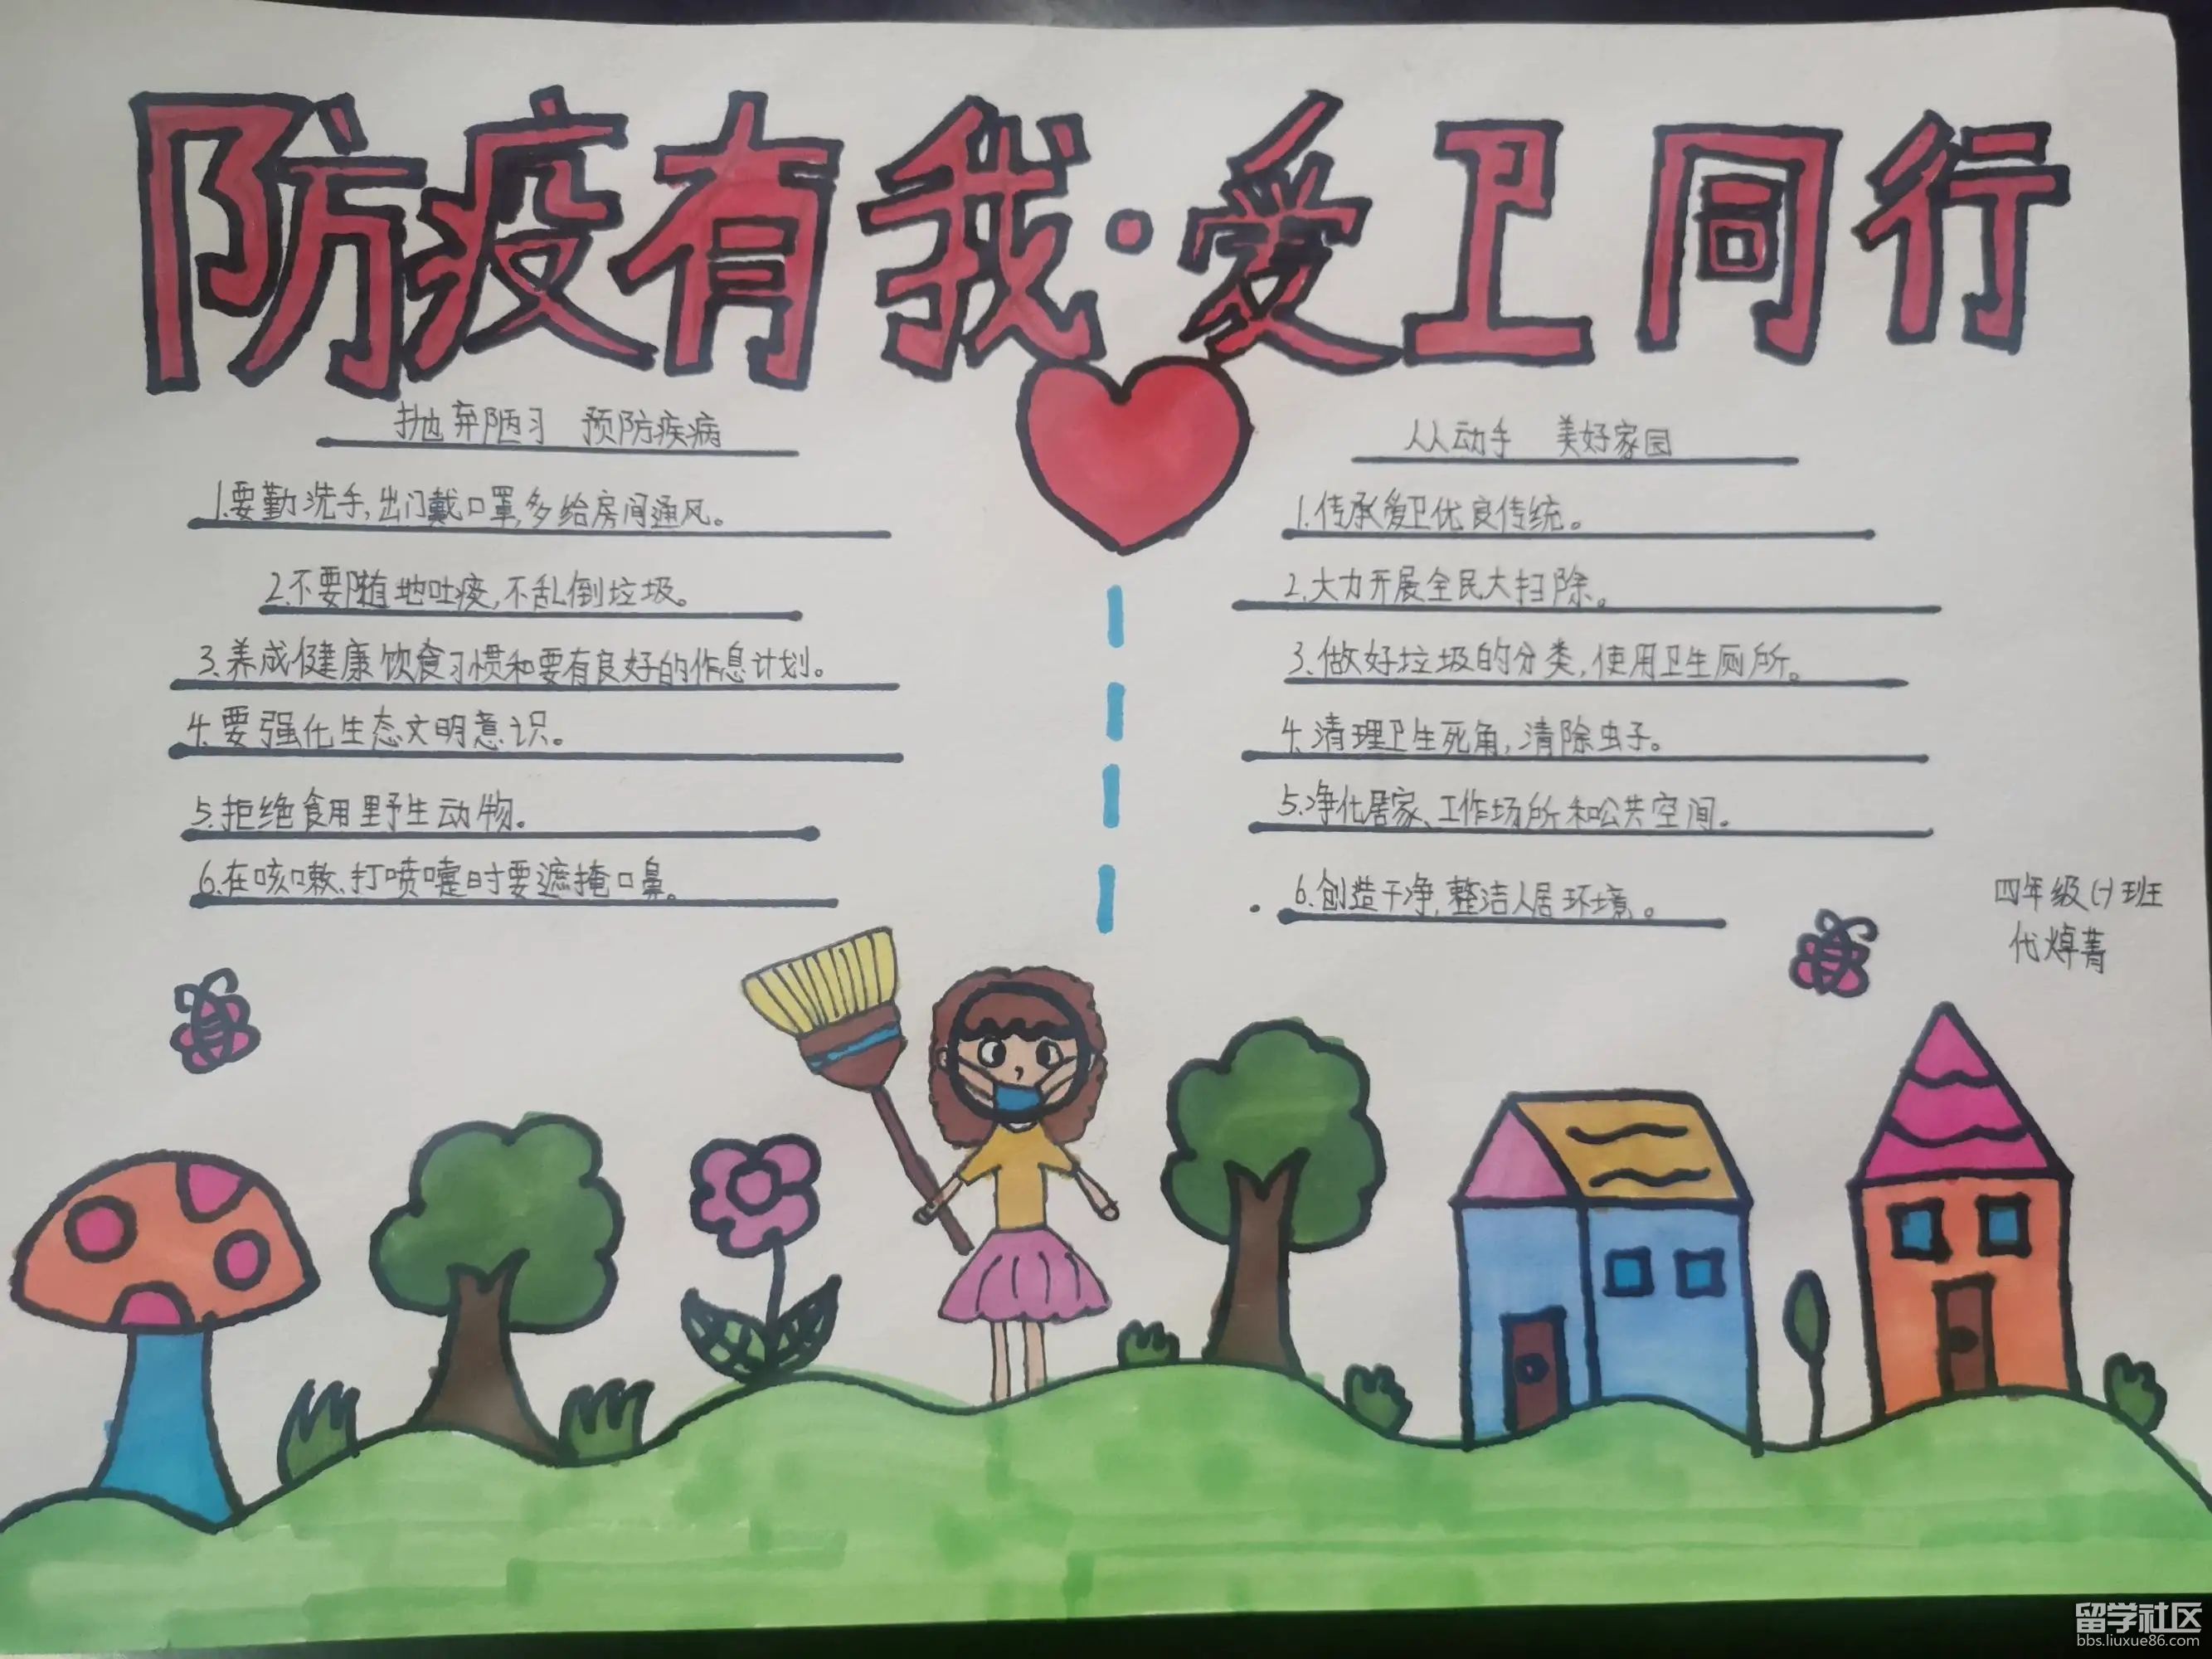 防疫有我·爱卫同行
抛弃陋习 预防疾病
1.要勤洗手,出门戴口罩,多给房间通风。
2.不要随地吐痰,不乱倒垃圾。
3.养成健康饮食习惯和要有良好的作息计划。
4.要强化生态文明意识。
5.拒绝食用野生动物。
6.在咳嗽、打喷嚏时要遮掩口鼻。
人人动手 美好家园
1.传承爱卫优良传统。
2.大力开展全民大扫除。
3.做好垃圾的分类,使用卫生厕所。
4.清理卫生死角,清除虫子。
5.净化居家、工作场所和公共空间。
6.创造干净,整洁人居环境。
四年级(一)班
代焯菁
留学社区
bbs.liuxue86.com